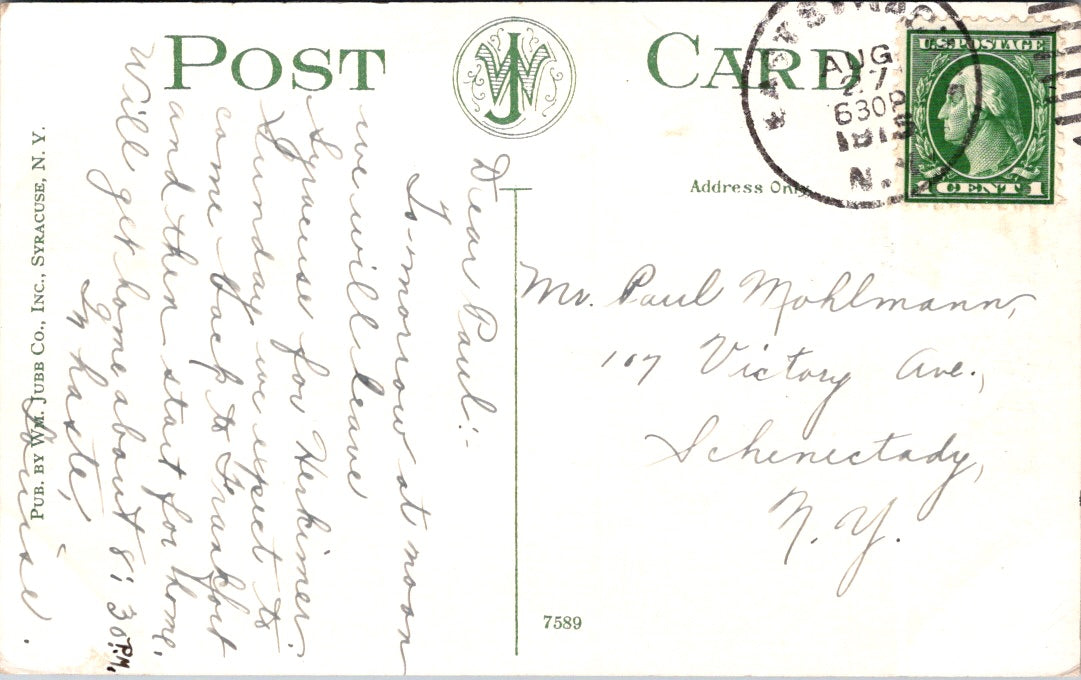 POST CARD
WJ
AUG
27
630P
1915
N.Y.
U.S. POSTAGE
1 CENT 1
Address Only
Dear Paul:-
To-morrow at noon
we will leave
Syracuse for Herkimer.
Sunday we expect to
come back to Frankfort
and then start for home.
Will get home about 8:30 P.M.
In haste,
Louise.
Mr. Paul Mohlmann,
107 Victory Ave.,
Schenectady,
N.Y.
7589
PUB. BY WM. JUBB CO., INC., SYRACUSE, N. Y.